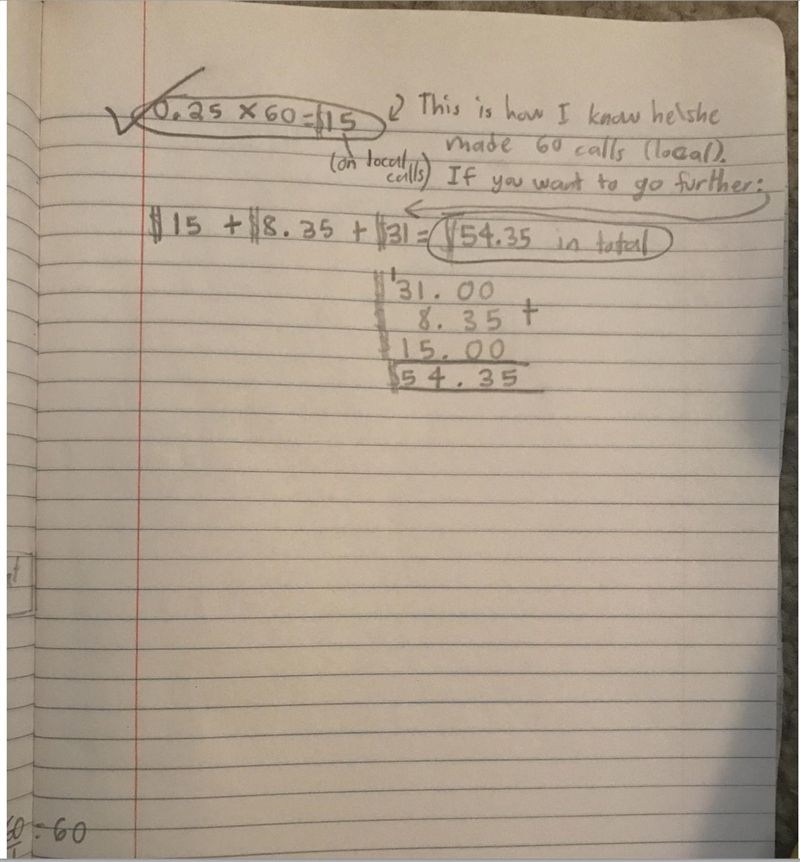 0.25 × 60 = $15
↙ This is how I know he\she
made 60 calls (local).
(on local calls)
If you want to go further:
$15 + $8.35 + $31 = $54.35 in total
1
$31.00
8.35 +
$15.00
$54.35
= 60